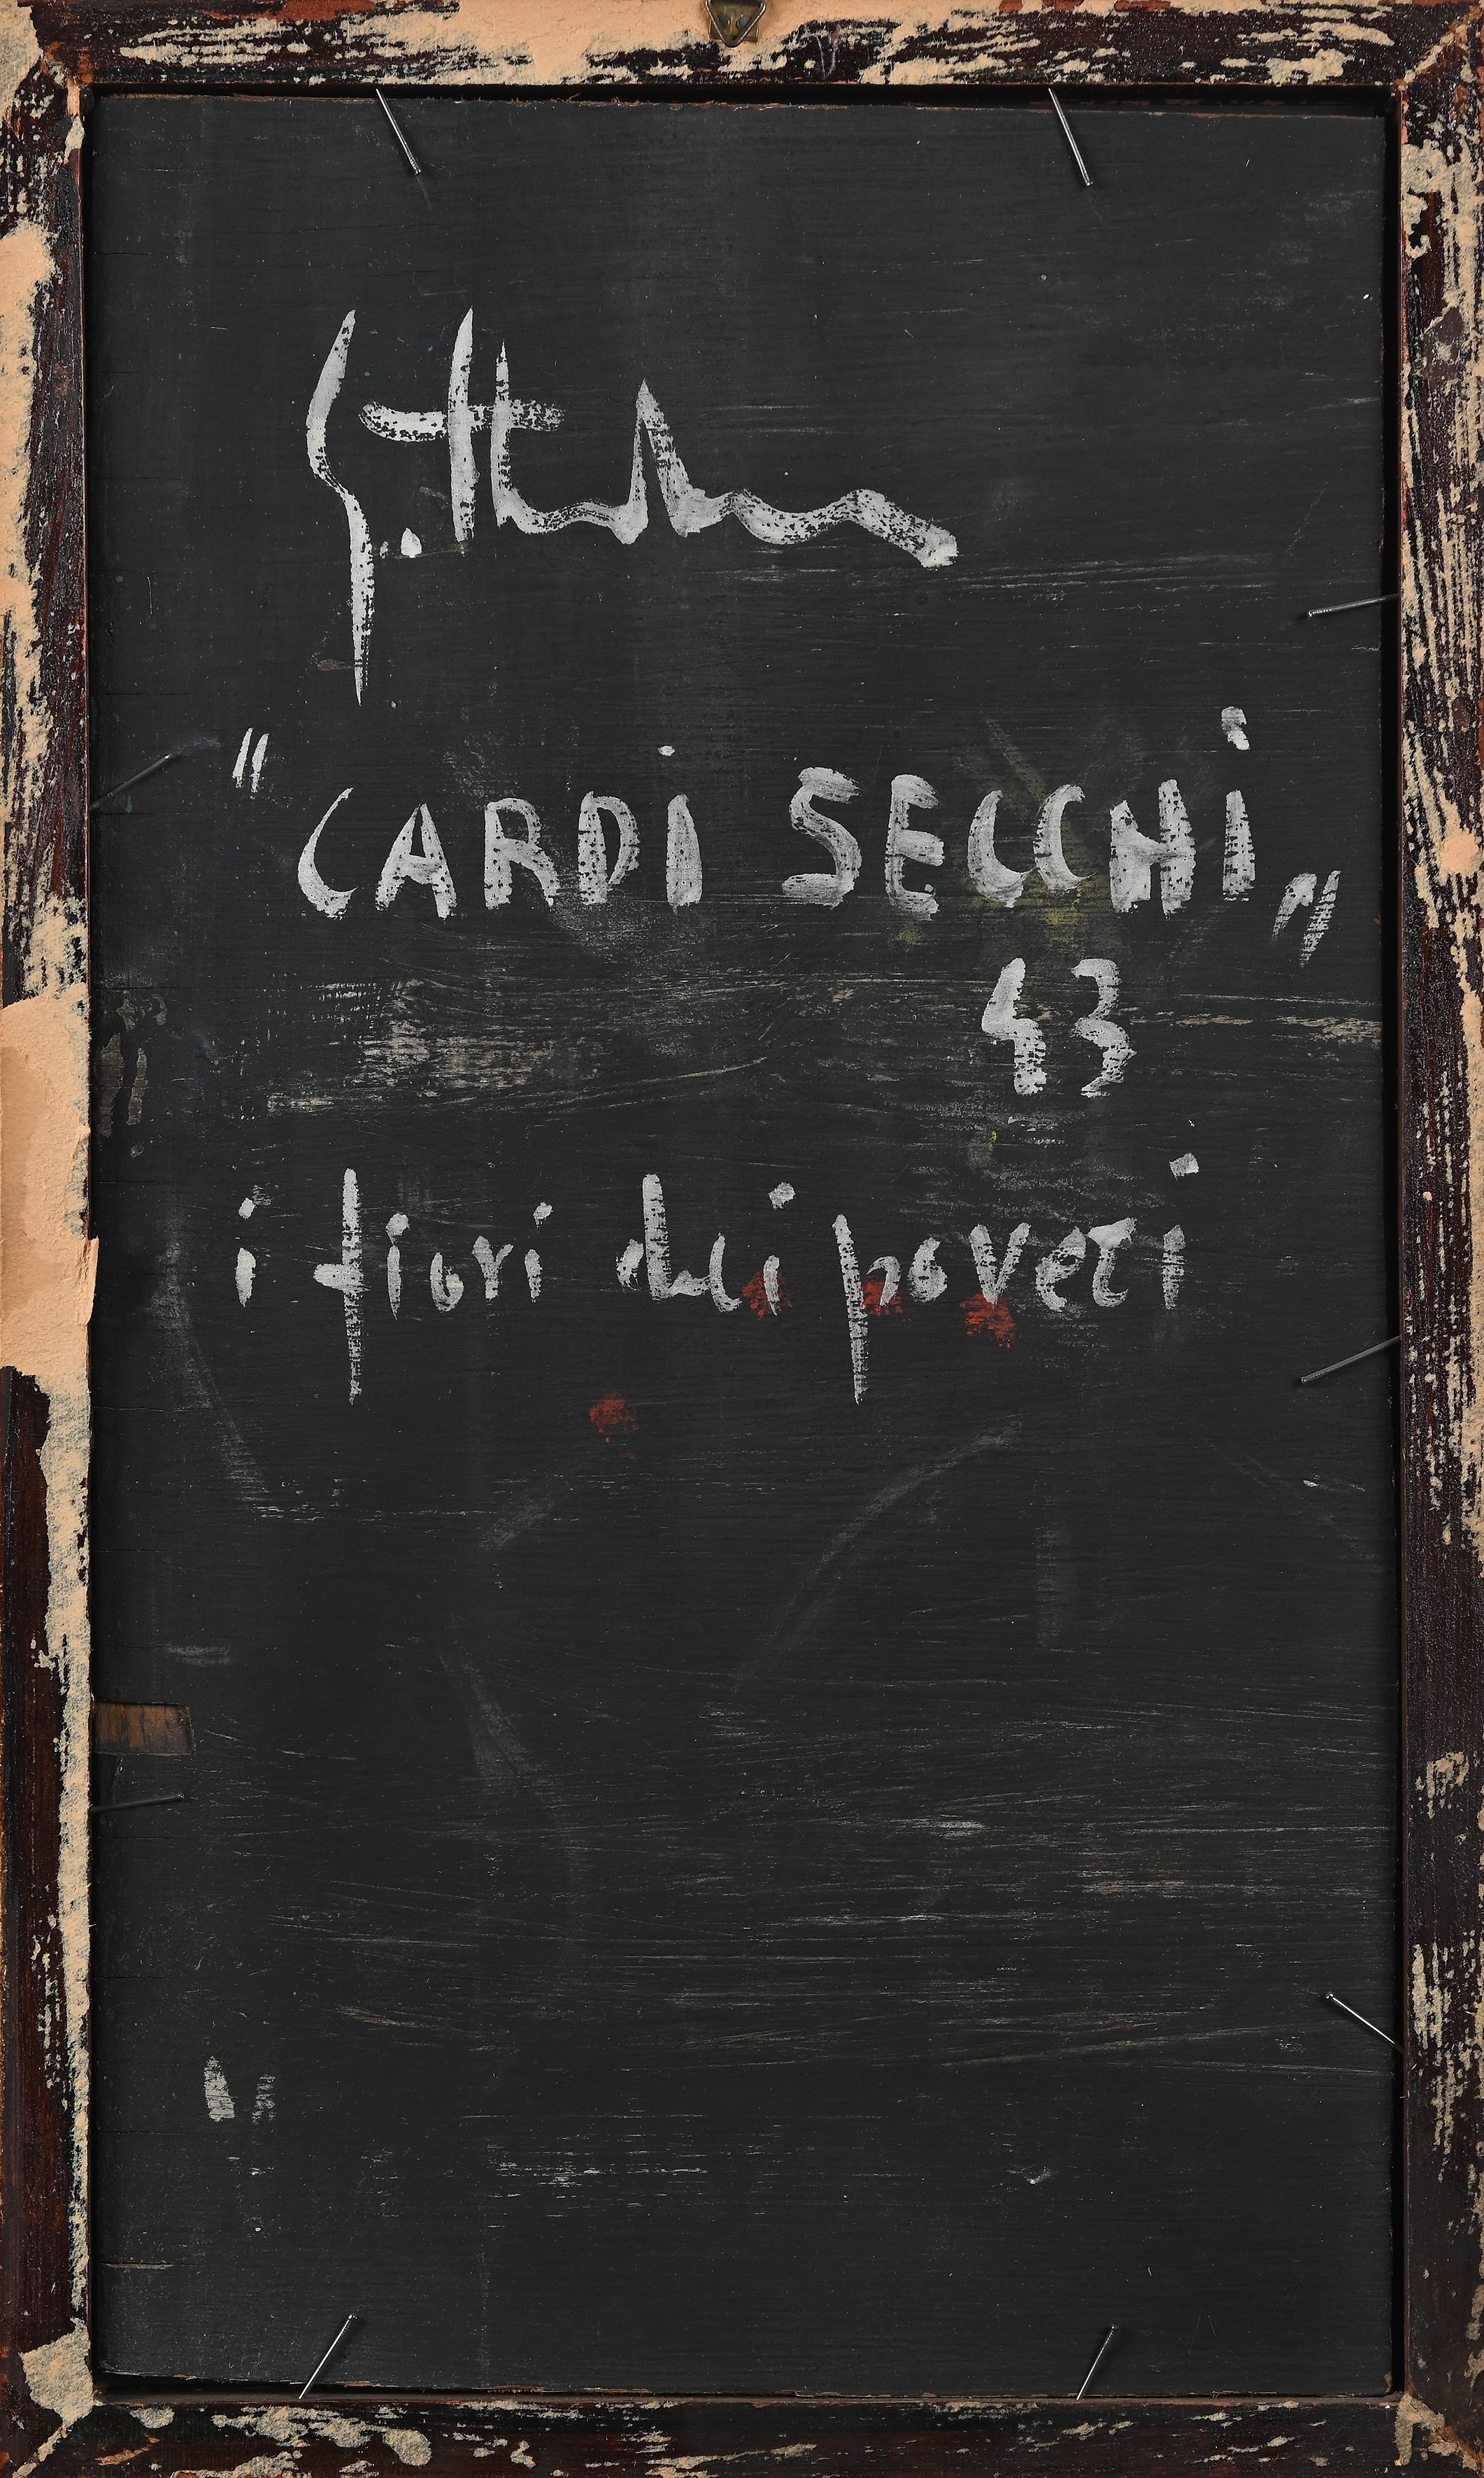 "CARDI SECCHI„
43
i fiori dei poveri